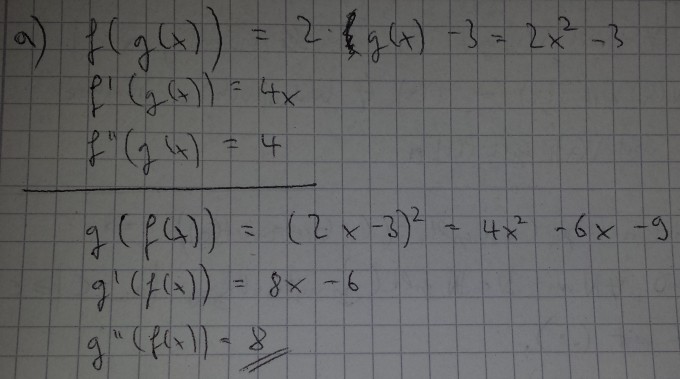 a) f(g(x)) = 2 · g(x) - 3 = 2x² - 3
f'(g(x)) = 4x
f''(g(x) = 4
g(f(x)) = (2x-3)² = 4x² - 6x - 9
g'(f(x)) = 8x - 6
g''(f(x)) = 8